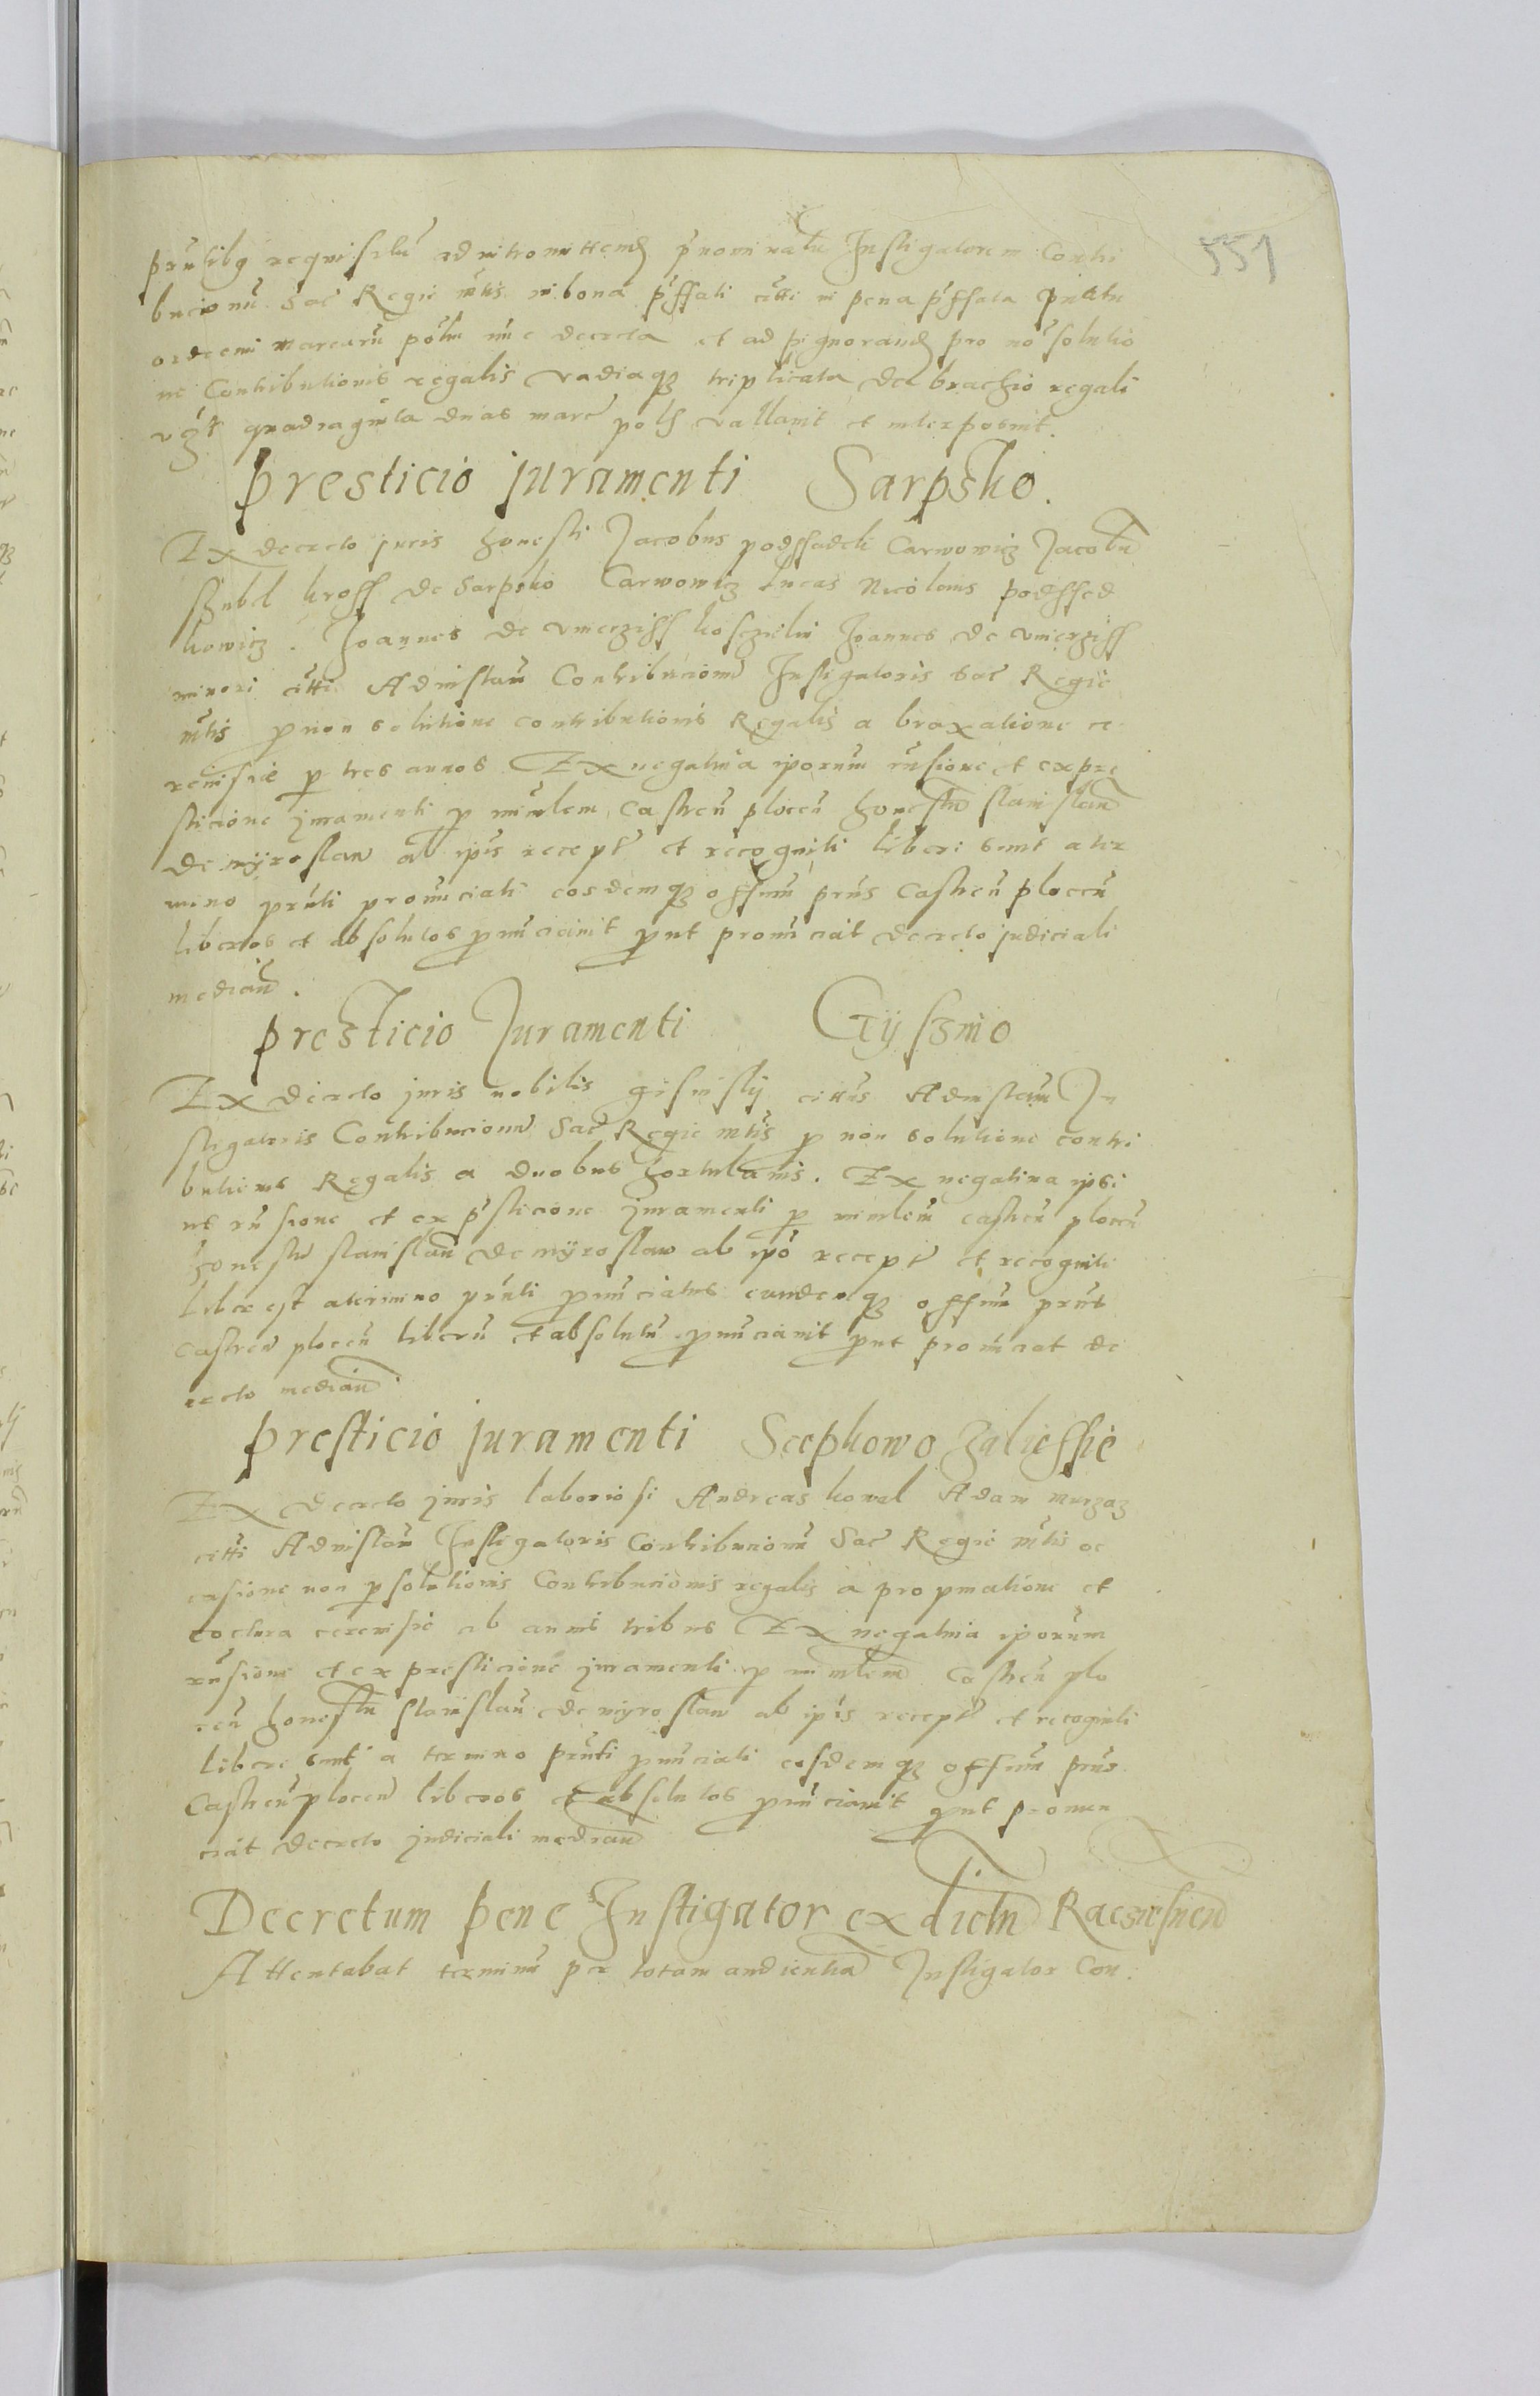 551
prntibg requisitu ad intromittend prenominatu Instigatorem Contri
bucionu Sac Regie mtis in bona pffati citti in pena pffata pntatu
ordecim marcaru polu nuc decreta et ad pignorand pro no solutio
ne Contributionis regalis vadiaqz triplicata de brachio regali
vzt quadraginta duas marc polh vallavit et interposuit.
Presticio juramenti Sarpsko.
Ex decreto juris honesti Jacobus podssadeli Carwowicz Jacobu
kross de Sarpsko Carwowicz Lucas Nicolaus podssed
kowicz. Joannes de vmierziss Joannes de vmierziss
minori citti Ad instan Contribucionu Instigatoris Sac Regie
mtis p non solutione contributionis Regalis a braxatione ce
revisie p tres annos Ex negativa iporum rnsione et expre
sticione juramenti p minlem Castren plocen honestu stanislau
de myroslaw ab ipis recept et recogniti liberi sunt a ter
mino prnti pronuciati eosdemqz offium prns Castren plocen
liberos et absolutos pnuciavit put pronuciat decreto judiciali
median.
Presticio Juramenti Gyszino
Ex decreto juris nobilis gisinsky cittus Ad instan In
stigatoris Contribucionu Sac Regie mtis p non solutione contri
butionis Regalis a duobus hortulanis. Ex negativa ipsi
us rnsione et ex psticione juramenti p minlem castren plocen
honestu stanislau de myroslaw ab ipo recept et recogniti
liber est a termino prnti pnuciatus eundemqz offium prns
Castren plocen liberu et absolutu pnuciavit put pronuciat de
creto median.
Presticio juramenti Secpkowo zaliessie
Ex decreto juris laboriosi Andreas koval Adam
citti Ad instan Instigatoris Contribucionu Sac Regie mtis oc
casione non psolutionis Contribucionis regalis a propinatione et
coctura cerevisie ab annis tribus Ex negativa iporum
rnsione et ex presticione juramenti p minlem Castren plo
cen honestu stanislau de myroslaw ab ipis recept et recogniti
liberi sunt a termino prnti pnuciati eosdemqz offium prns
Castren plocen liberos et absolutos pnuciavit put pronun
ciat decreto judiciali median
Decretum pene Instigator ex dictu
Attentabat terminu per totam audientia Instigator Con.